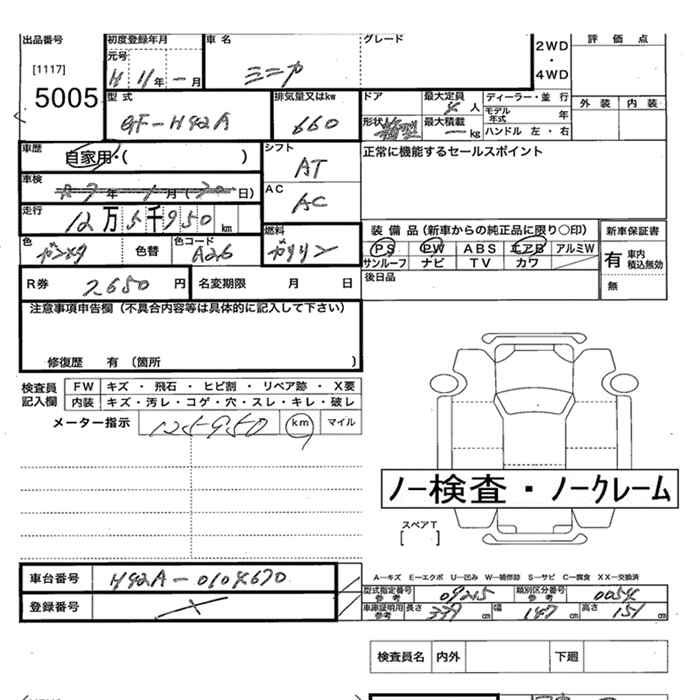 出品番号 初度登録年月 車名 グレード 評価点
[1117] 元号 H 11年 一月 ミニカ 2WD・4WD 外装 内装
5005 型式 GF-H42A 排気量又はkw 660 ドア 形状 最大定員 4人 最大積載 kg ディーラー・並行 モデル年式 年 ハンドル 左・右
車歴 自家用・( ) シフト AT 正常に機能するセールスポイント
車検 年 月 ( 日) AC AC
走行 12万5千950km 装備品(新車からの純正品に限り○印) 新車保証書
色 色替 色コード A26 燃料 ガソリン PS PW ABS エアB アルミW 有 車内積込無効
サンルーフ ナビ TV カワ 無
R券 2650円 名変期限 月 日 後日品
注意事項申告欄(不具合内容等は具体的に記入して下さい)
修復歴 有 (箇所 )
検査員記入欄 FW キズ・飛石・ヒビ割・リペア跡・X要
内装 キズ・汚レ・コゲ・穴・スレ・キレ・破レ
メーター指示 125950 km マイル
ノー検査・ノークレーム
スペアT
[ ]
車台番号 H42A-0104670 A-キズ E-エクボ U-凹み W-補修跡 S-サビ C-腐食 XX-交換済
型式指定番号 参考 09215 類別区分番号 参考 0054
登録番号 車庫証明用 参考 長さ 339cm 幅 147cm 高さ 151cm
検査員名 内外 下廻